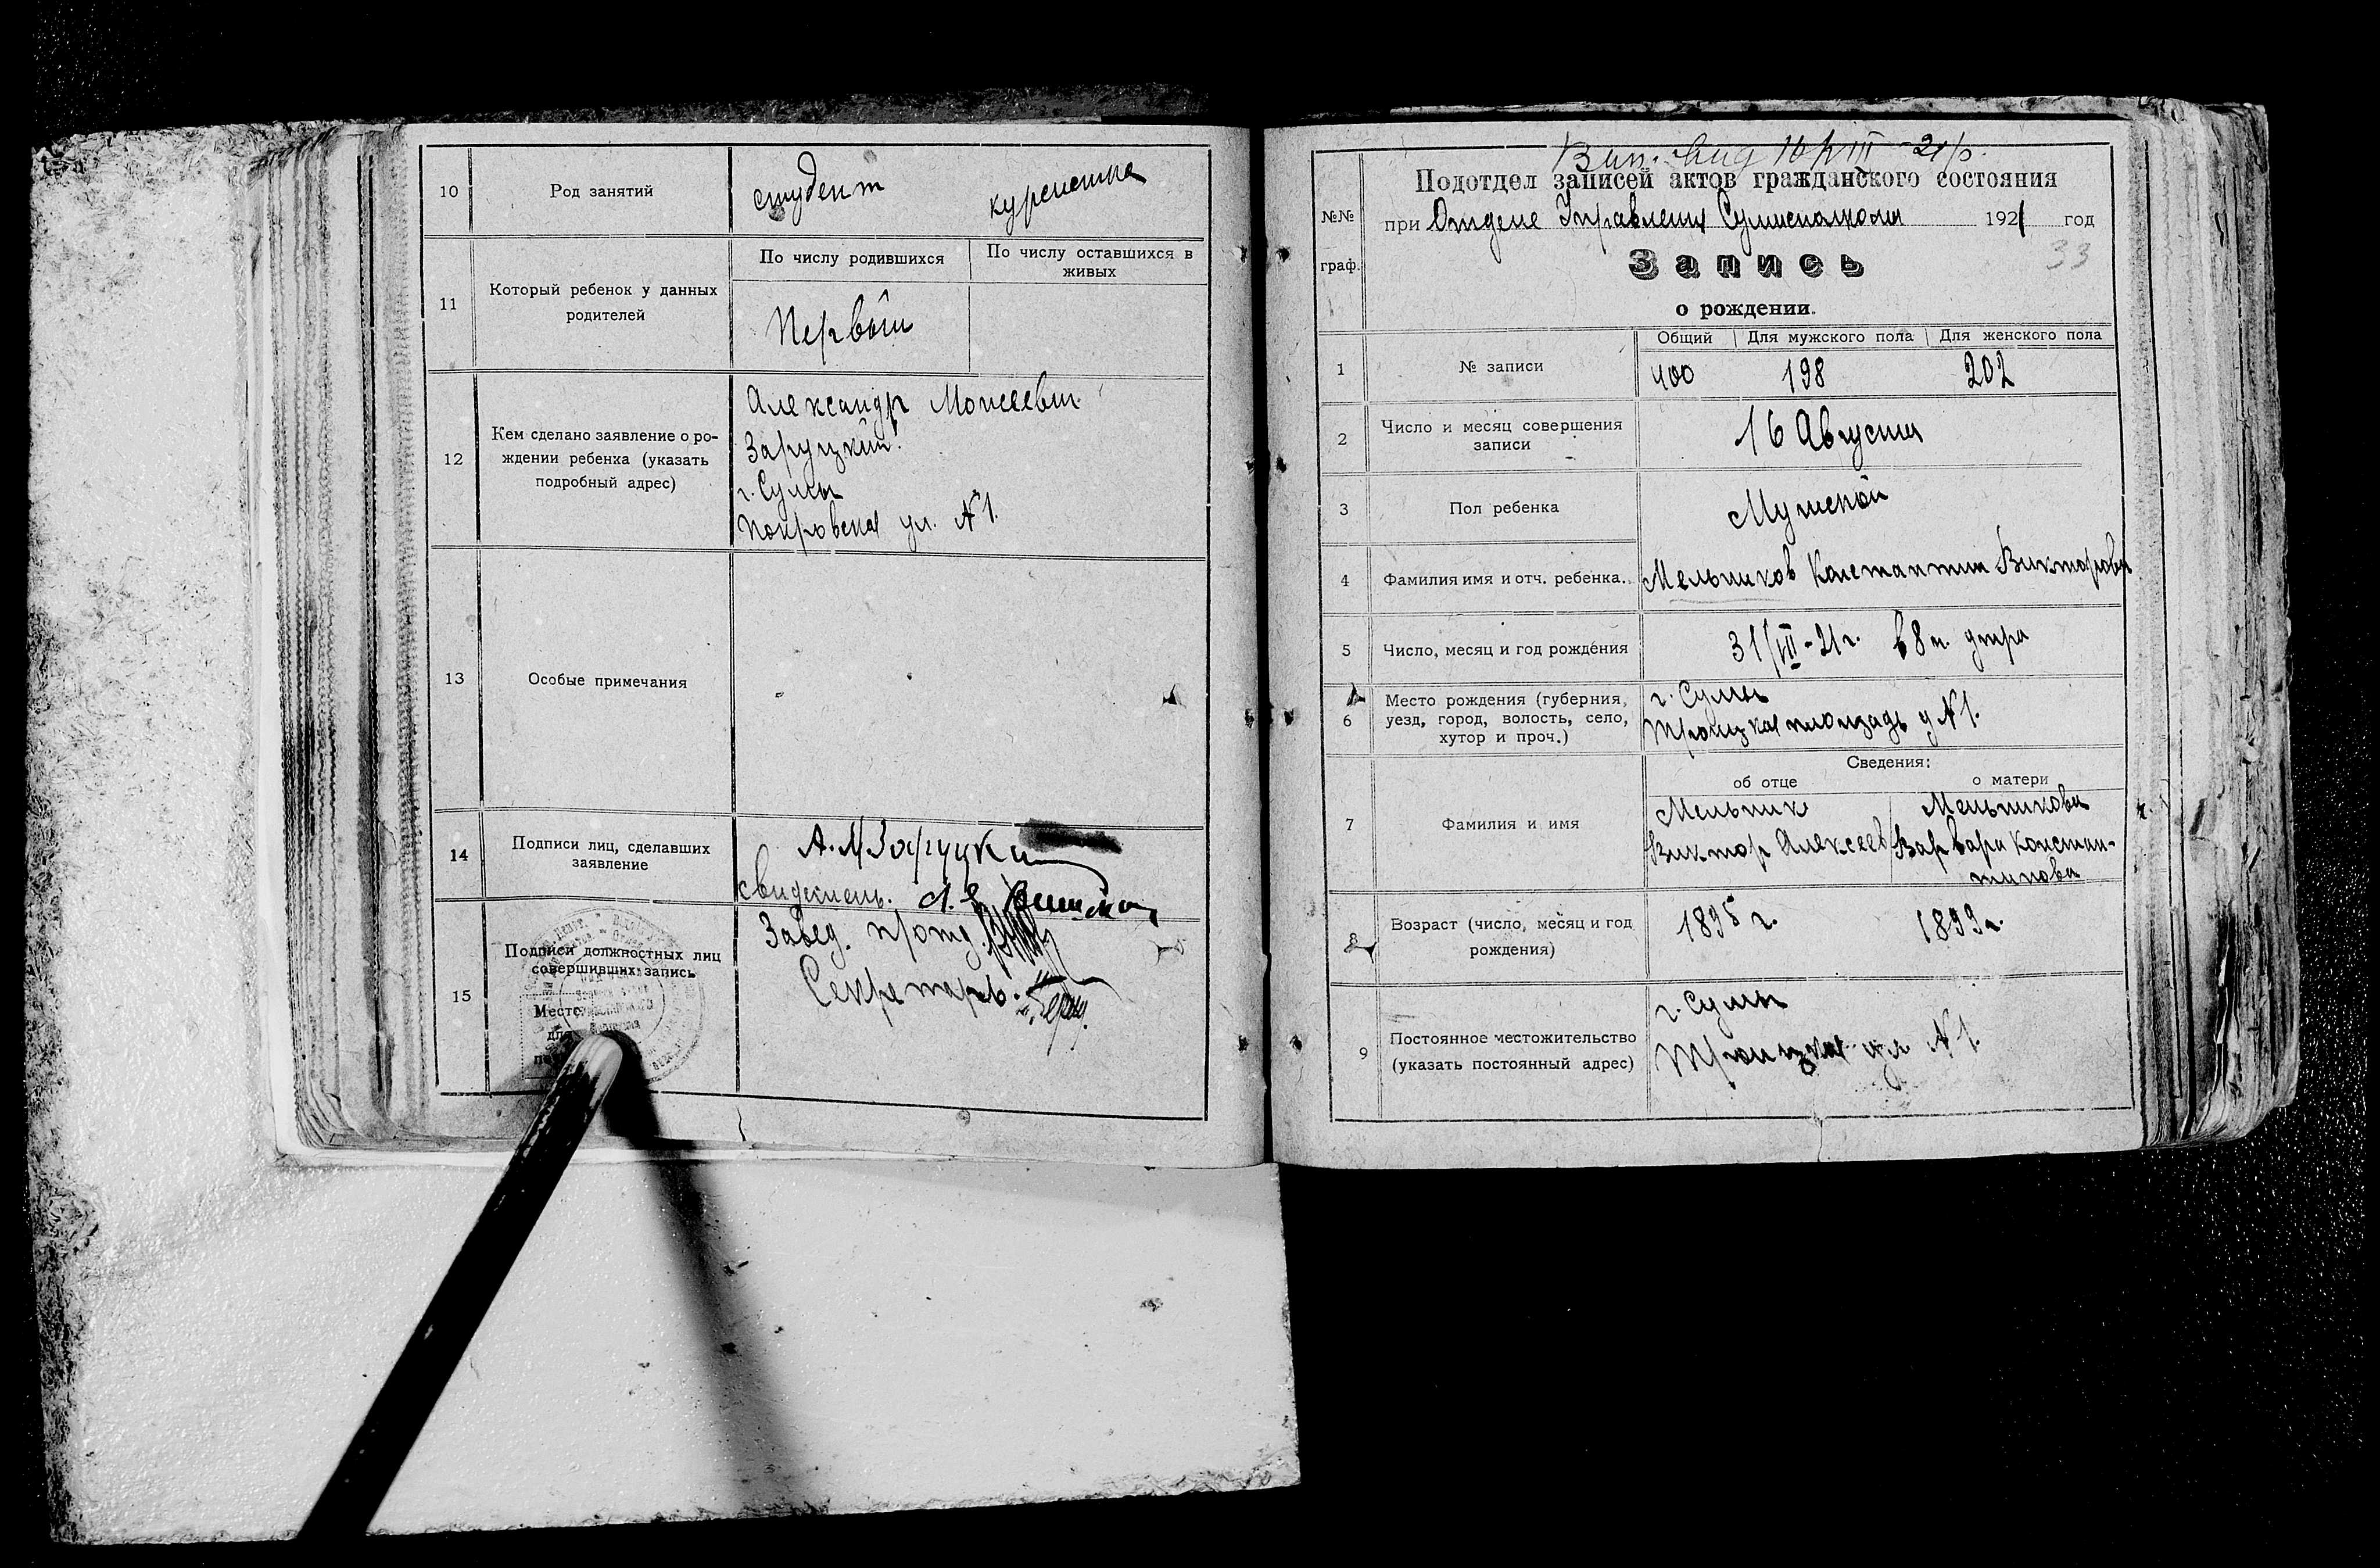 10
Род занятий
студент
курсистка
11
Который ребенок у данных
родителей
По числу родившихся
По числу оставшихся в
живых
Первый
12
Кем сделано заявление о ро-
ждении ребенка (указать
подробный адрес)
Александр Моисеевич
Заруцкий.
г. Сумы
Покровская ул. №1.
13
Особые примечания
14
Подписи лиц, сделавших
заявление
А. М Заруцкий
свидетель.
15
Подписи должностных лиц
совершивших запись
Место
для
Завед. п/отд.
Секретарь.
16/VIII-21
Подотдел записей актов гражданского состояния
№№
граф.
при Отделе Управления Сумисполкома 1921 год
33
Запись
о рождении.
1
№ записи
Общий
Для мужского пола
Для женского пола
400
198
202
2
Число и месяц совершения
записи
16 Августа
3
Пол ребенка
Мужской
4
Фамилия имя и отч. ребенка.
Мельников Константин Викторович
5
Число, месяц и год рождения
31/VII-21 г. в 8 ч. утра
6
Место рождения (губерния,
уезд, город, волость, село,
хутор и проч.)
г. Сумы
Троицкая площадь д №1.
7
Фамилия и имя
Сведения:
об отце
о матери
Мельник
Виктор Алексеев
Мельникова
Варвара Констан-
тинова
8
Возраст (число, месяц и год
рождения)
1895 г.
1899 г.
9
Постоянное местожительство
(указать постоянный адрес)
г. Сумы
Троицкая пл №1.